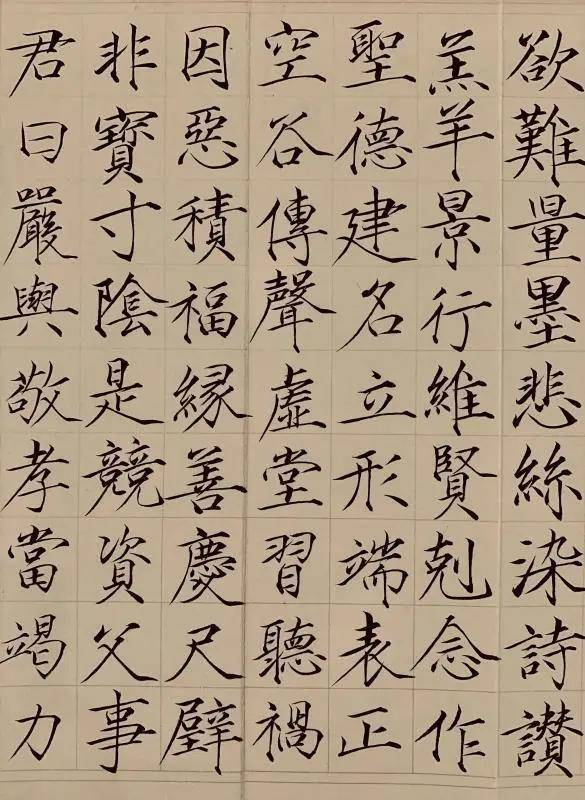 欲難量墨悲絲染詩讃
羔羊景行維賢剋念作
聖德建名立形端表正
空谷傳聲虛堂習聽禍
因惡積福緣善慶尺璧
非寶寸陰是競資父事
君曰嚴與敬孝當竭力